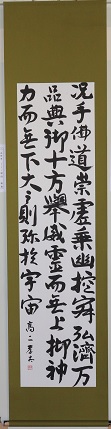 况乎佛道崇虚乗幽控寂弘濟万
品典御十方舉威靈而無上抑神
力而無下大之則弥於宇宙 高二